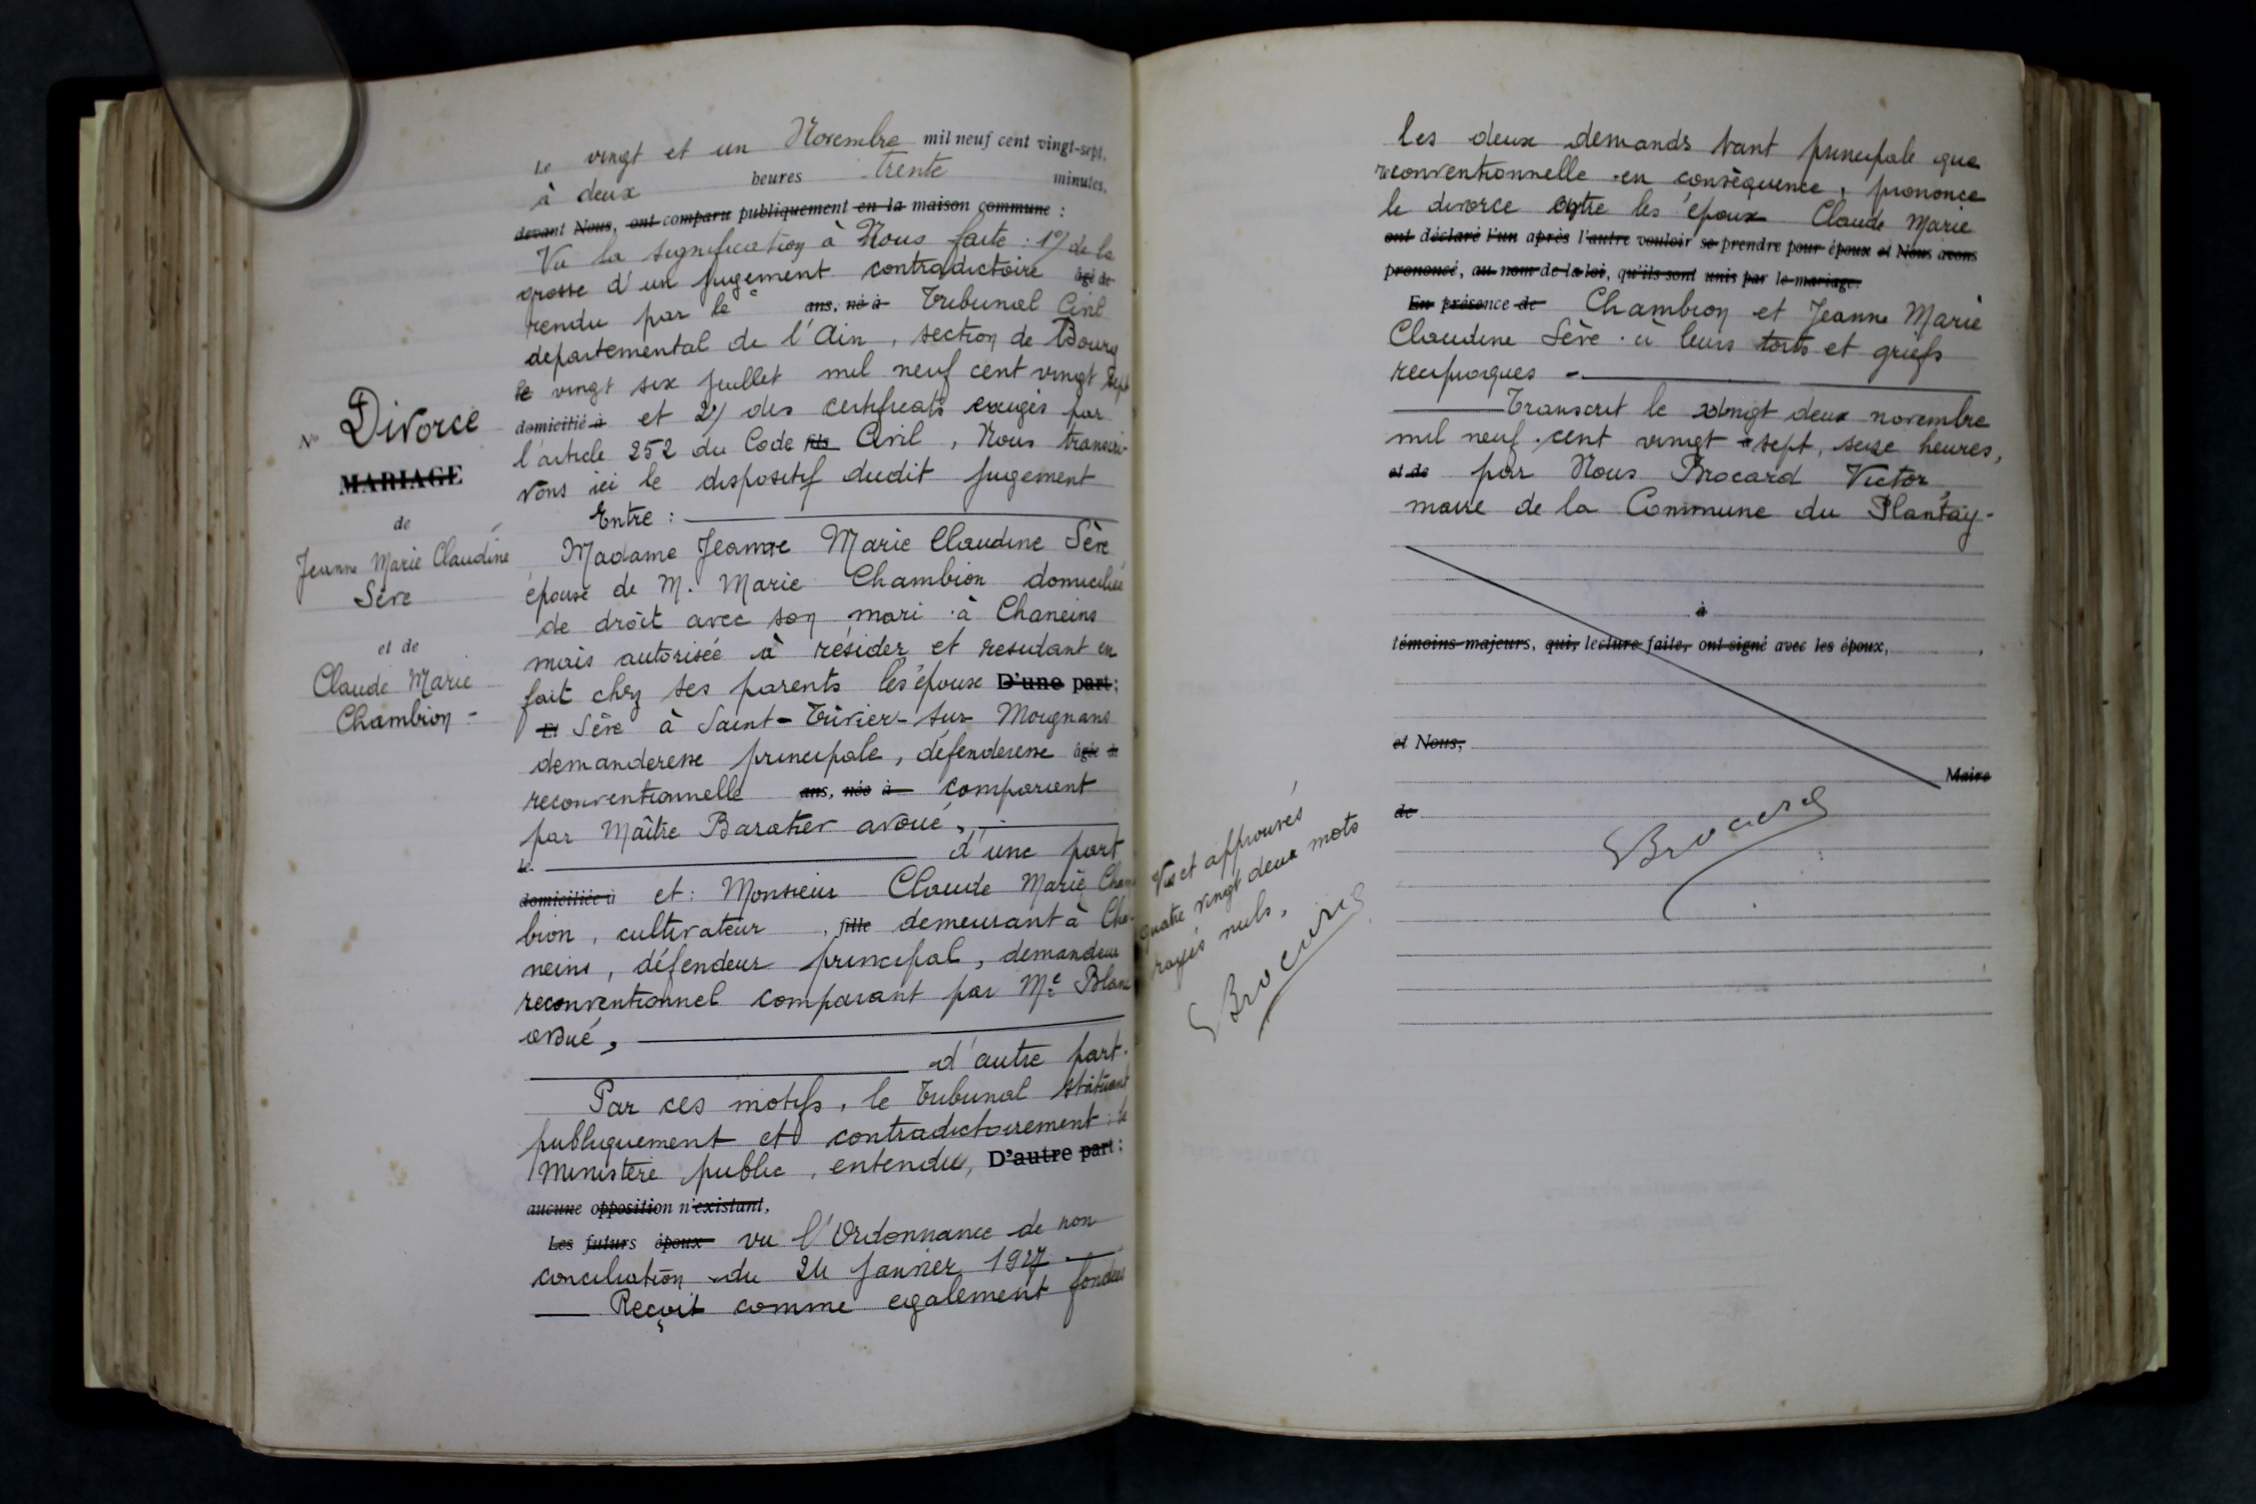 Le vingt et un Novembre mil neuf cent vingt-sept,
à deux heures trente minutes,
devant Nous, ont comparu publiquement en la maison commune :
Vu la signification à Nous faite : 1°/ de la
grosse d'un jugement contradictoire âgé de
rendu par le ans, né à Tribunal Civil
departemental de l'Ain, section de Bourg
le vingt six juillet mil neuf cent vingt sept
domicilié à et 2°/ des certificats exigés par
l'article 252 du Code fils Civil, Nous transcri-
vons ici le dispositif dudit jugement
Entre :
Madame Jeanne Marie Claudine Sère
épouse de M. Marie Chambion domiciliée
de droit avec son mari à Chaneins
mais autorisée à résider et residant en
fait chez ses parents les époux D'une part ;
Et Sère à Saint-Trivier-sur Moignans
demanderesse principale, défenderesse âgée de
reconventionnelle ans, née à comparant
par Maître Baratier avoué,
le d'une part
domiciliée à et : Monsieur Claude Marie Cham
bion, cultivateur, fille demeurant à Cha-
neins, défendeur principal, demandeur
reconventionnel comparant par Me Blanc
avoué,
d'autre part.
Par ces motifs, le Tribunal statuant
publiquement et contradictoirement ; le
Ministère public, entendu, D'autre part :
aucune opposition n'existant,
Les futurs époux vu l'Ordonnance de non
conciliation du 24 janvier 1927
Reçoit comme egalement fondées
N° Divorce
MARIAGE
de
Jeanne Marie Claudine
Sère
et de
Claude Marie
Chambion -
les deux demands tant principale que
reconventionnelle en conséquence, prononce
le divorce entre les époux Claude Marie
ont déclaré l'un après l'autre vouloir se prendre pour époux et Nous avons
prononcé, au nom de la loi, qu'ils sont unis par le mariage.
En présence de Chambion et Jeanne Marie
Claudine Sère à leurs torts et griefs
reciproques -
Transcrit le vingt deux novembre
mil neuf cent vingt sept, seize heures,
et de par Nous Brocard Victor,
maire de la Commune du Plantay-
à
témoins majeurs, qui, lecture faite, ont signé avec les époux,
et Nous,
Maire
de
Brocard
Vus et approuvés
quatre vingt deux mots
rayés nuls,
Brocard